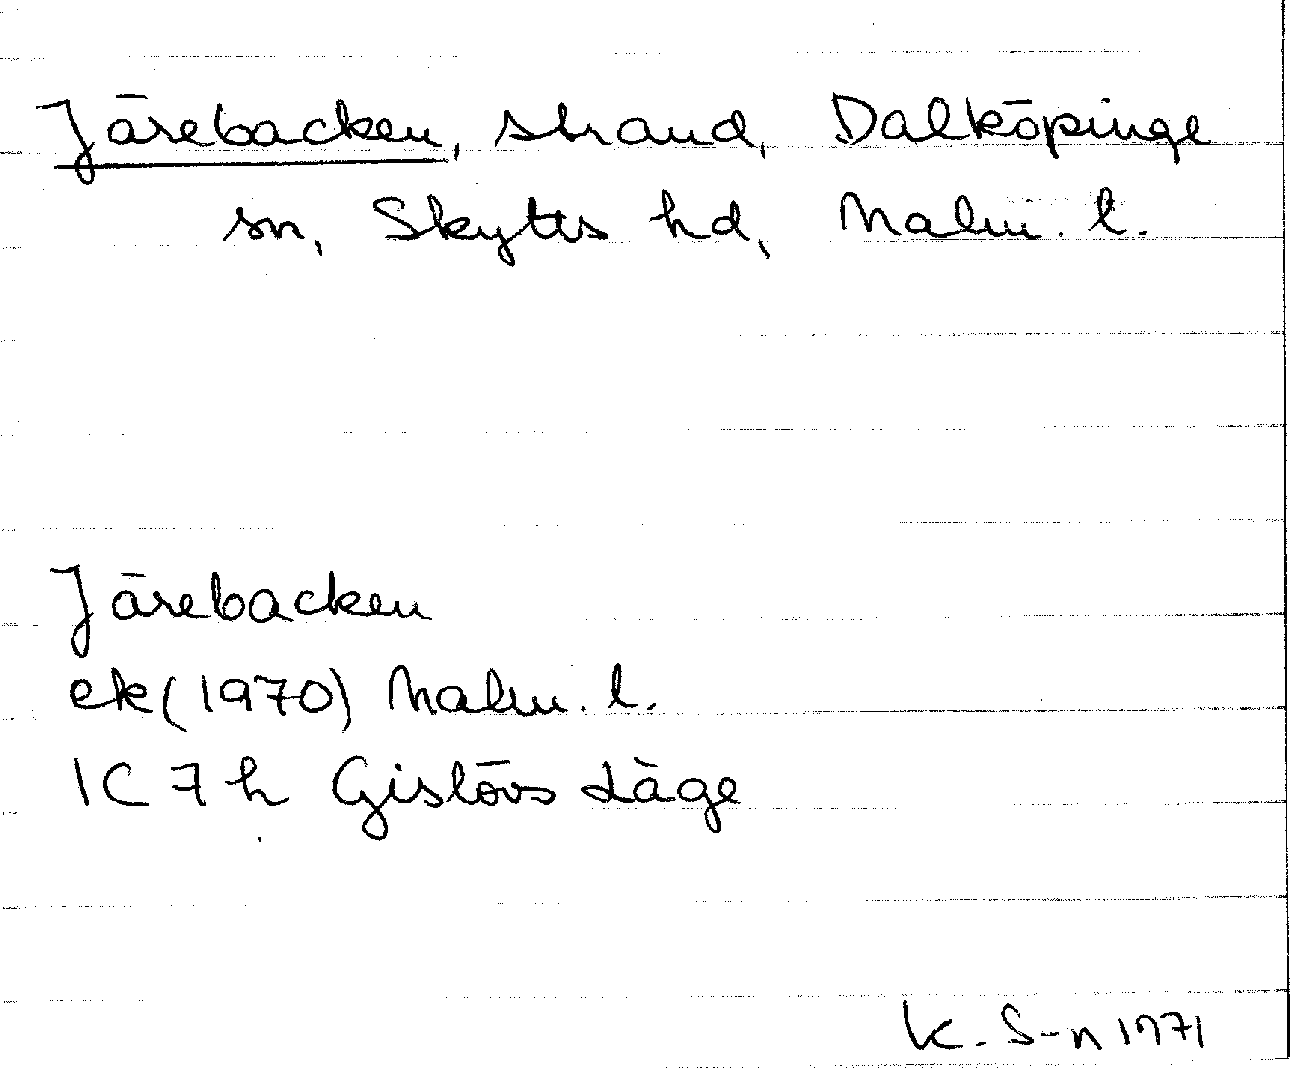 Järebacken, strand, Dalköpinge
sn, Skytts hd, Malm. l.
Järebacken
ek (1970) Malm. l.
1C 7h Gislövs Läge
K. S-n 1971